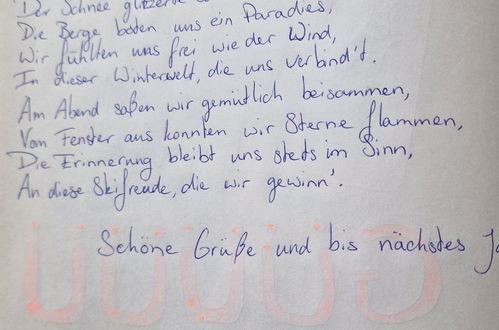 Der Schnee glitzerte
Die Berge boten uns ein Paradies,
Wir fühlten uns frei wie der Wind,
In dieser Winterwelt, die uns verbind't.
Am Abend saßen wir gemütlich beisammen,
Vom Fenster aus konnten wir Sterne flammen,
Die Erinnerung bleibt uns stets im Sinn,
An diese Skifreude, die wir gewinn'.
Schöne Grüße und bis nächstes